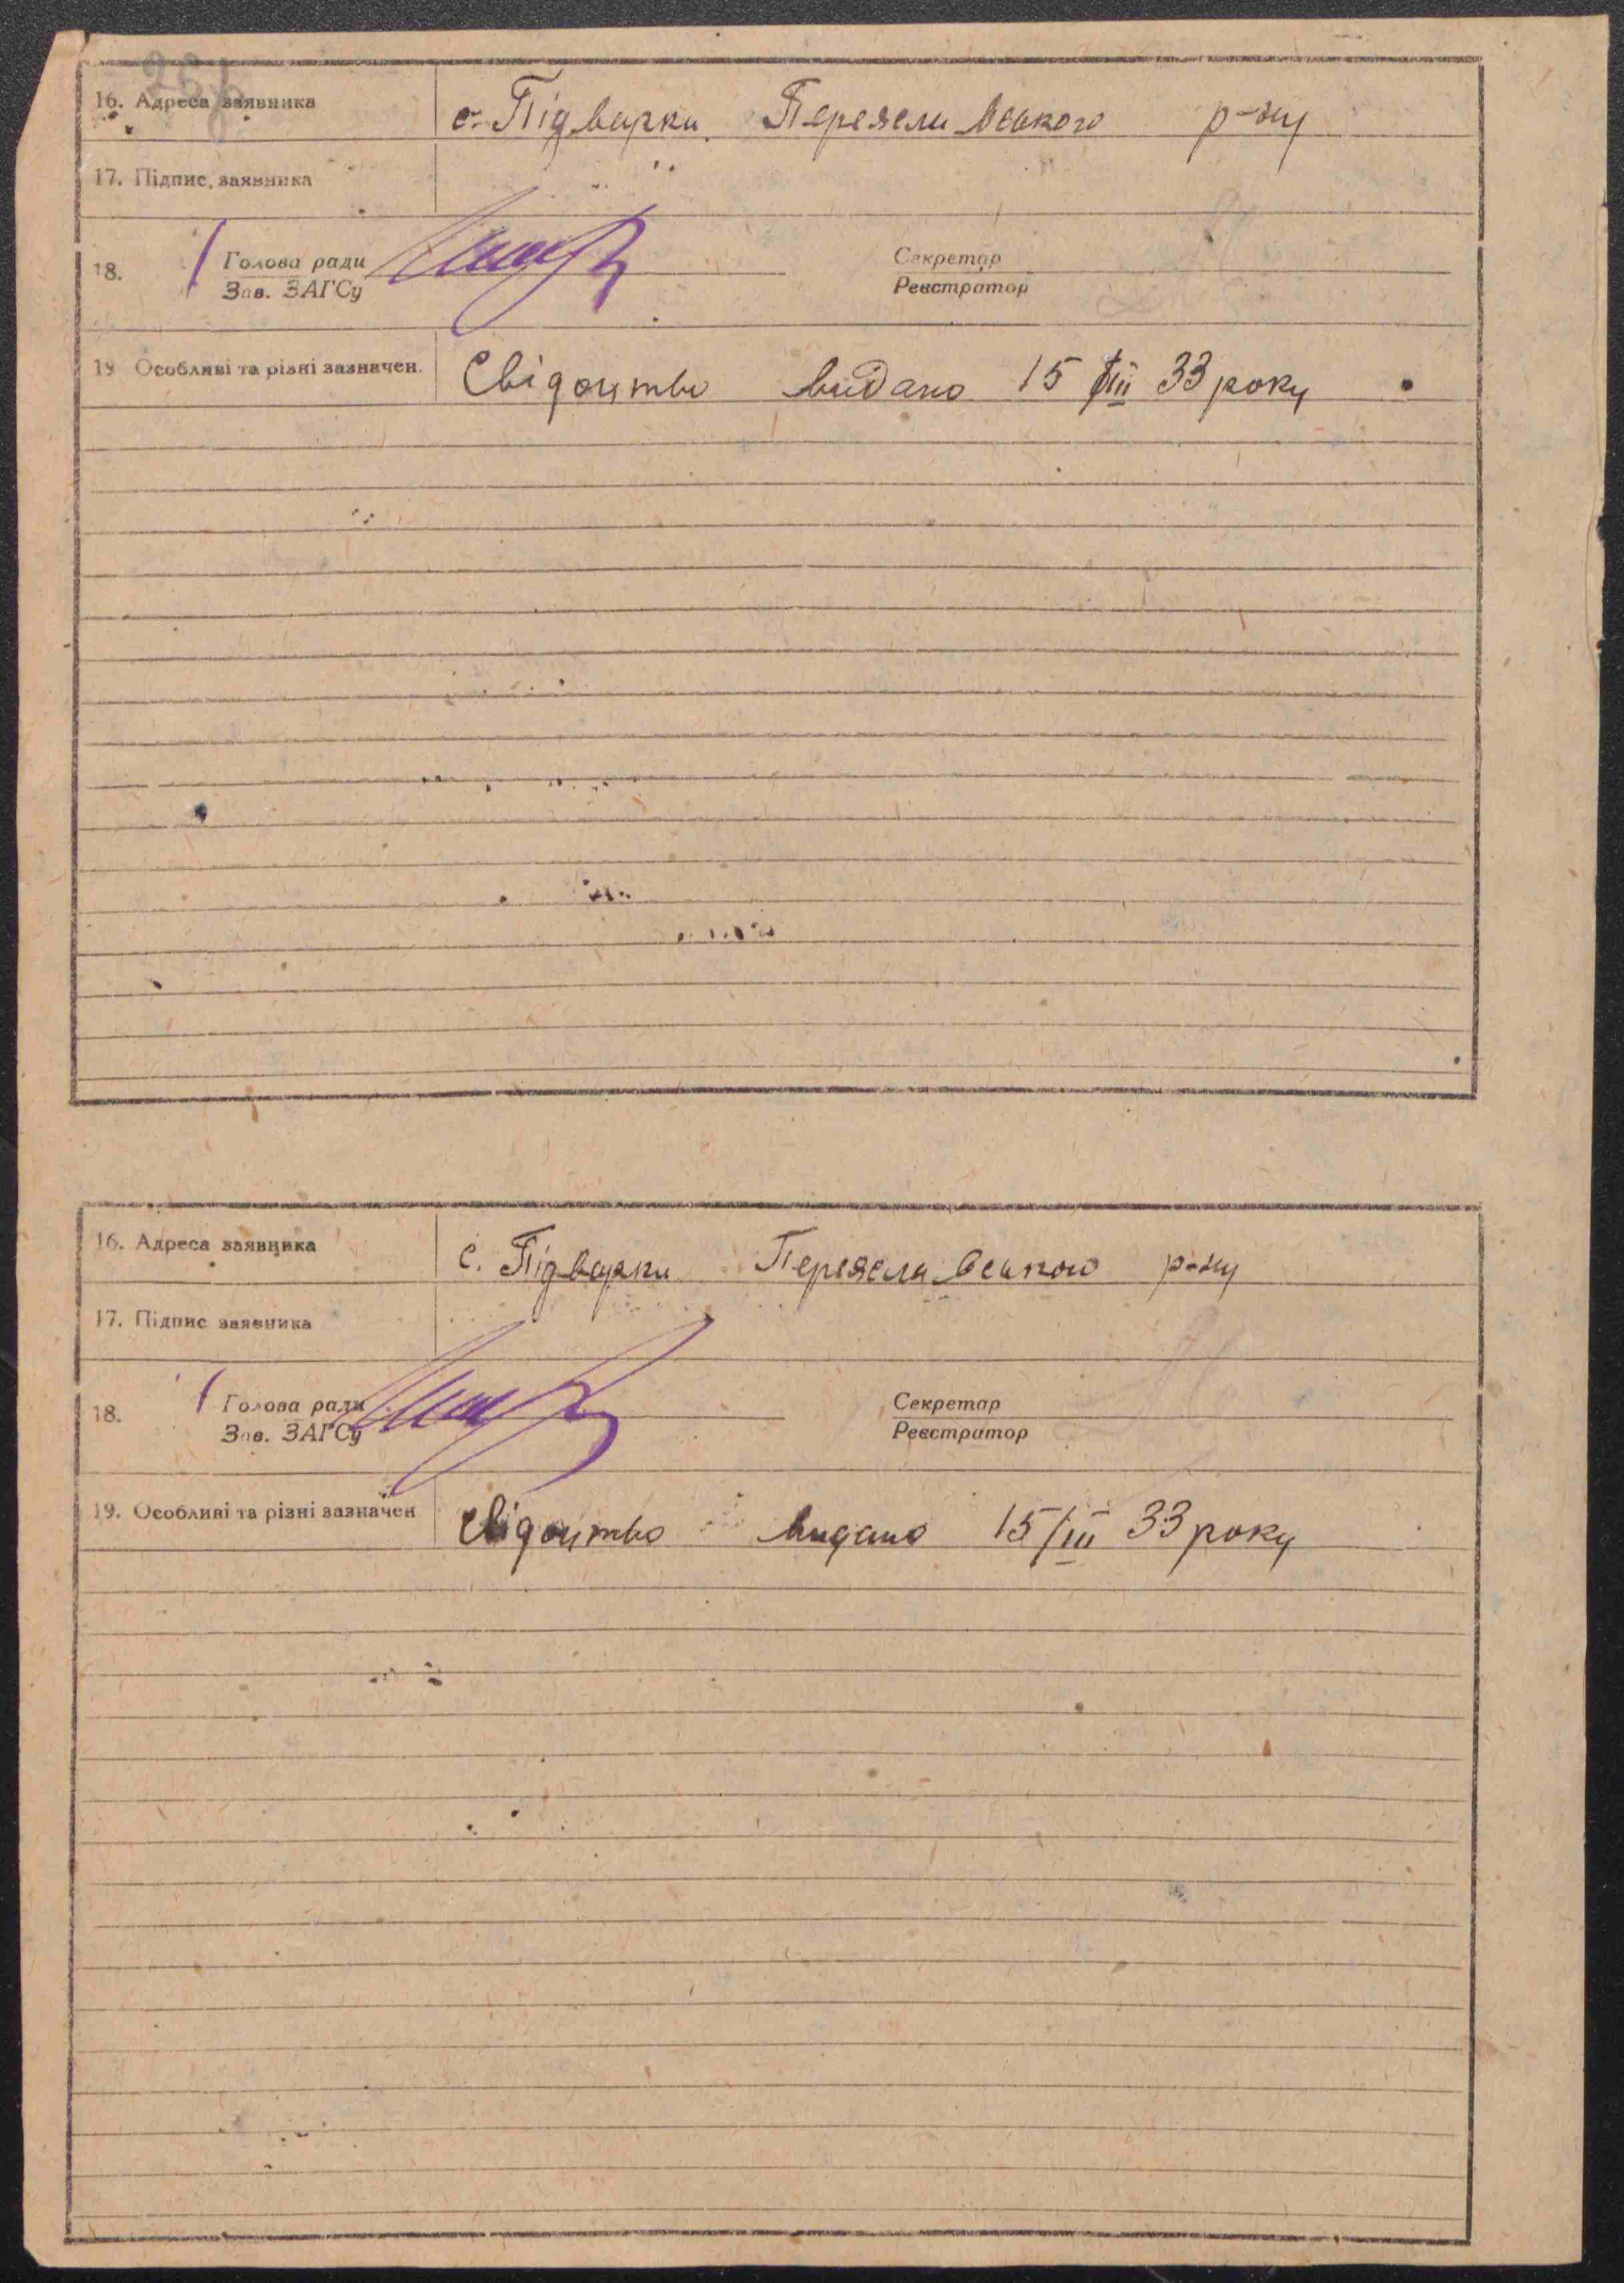 16. Адреса заявника с. Підварки Переяславського р-ну
17. Підпис заявника
18. Голова ради Секретар
Зав. ЗАГСу Реєстратор
19 Особливі та різні зазначен. Свідоцтво видано 15/III 33 року
16. Адреса заявника с. Підварки Переяславського р-ну
17. Підпис заявника
18. Голова ради Секретар
Зав. ЗАГСу Реєстратор
19. Особливі та різні зазначен Свідоцтво видано 15/III 33 року